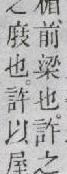 楣前梁也。許之
之庪也。許以屋